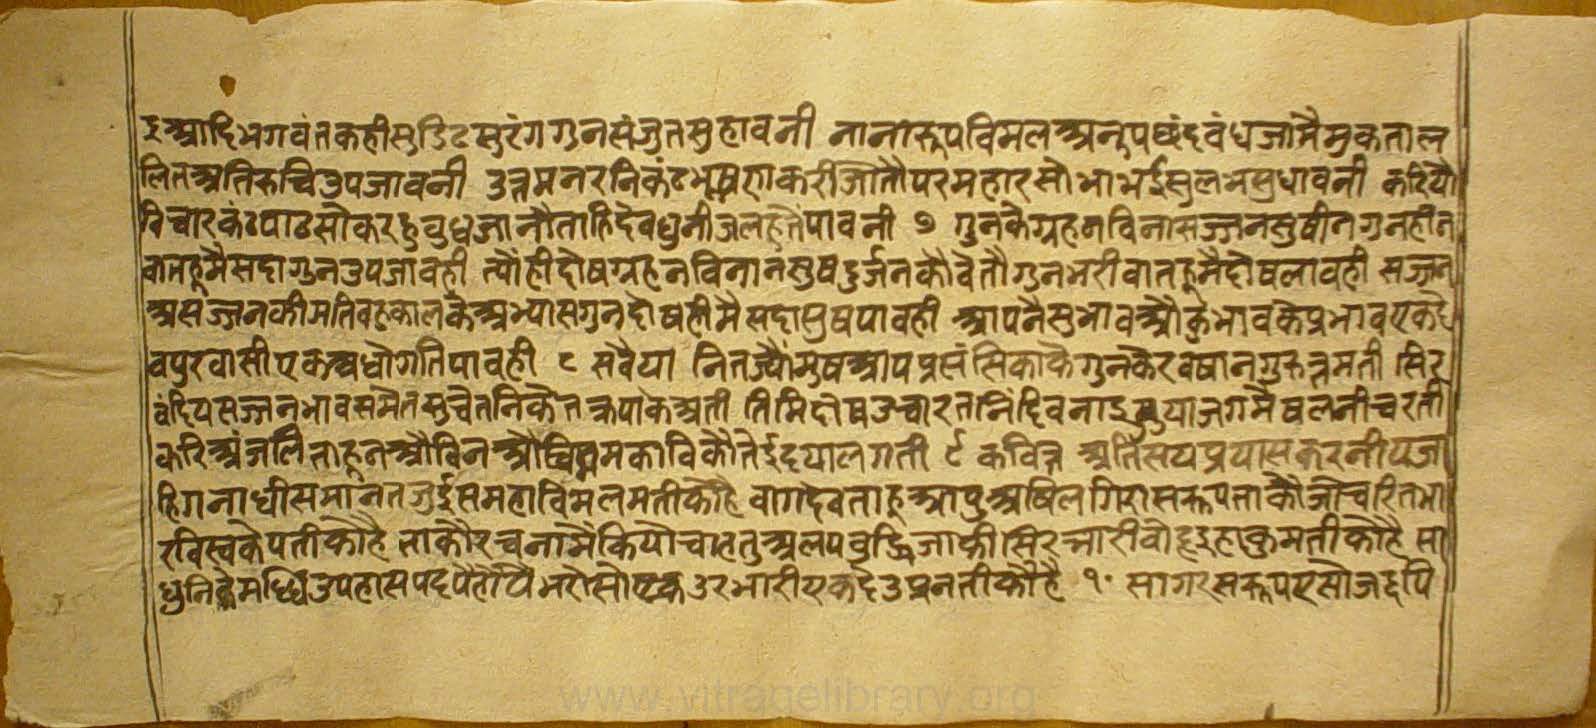 इआदि भगवंत कही सुडिट सुरंग गुन संजुत सुहावनी नाना रूप विमल अनूप छंद वंध जामै मुकता ल
लित अति रुचि उपजावनी उत्तम नर निकंट भूष करी जातौ परम हा र सोभा भई सुलभ सुधावनी करियौ
विचार कंठ पाठ सौ करहु वुध जानौ ताहि देवधुनी जल हूतै पावनी ७ गुन कै ग्रहन विना सज्जन सुषी न गुनहीन
वातहू मै सदा गुन उपजावही त्यौं ही दोष ग्रहन विना न सुष दुर्जन कौ वे तौ गुन भरी वातहू मै दोष लावही सज्जन
असज्जन की मति वहु काल कै अभ्यास गुन दोष ही मै सदा सुष पावही आपनै सुभाव औ कुभाव के प्रभाव एक दे
वपुरवासी एक अधोगति पावही ८ सवैया नित ज्यौं मुष आप प्रसंसि काकै गुन कै रवषान गुरुत्तमती सिर
वंदिय सज्जन भाव समेत सुचेत निकेत क्रपा के अती तिमि दोष उचारत निंदिव जगमै षलनी चरती
करि अंजलि ताहू न औ विन औ कौ तेई दयाल गती ९ कवित्त अतिसय प्रयास करनीय जा
हि गनाधीस मानत जु ईस महा विमल मती कौ है वागदेवताहू आपु अषिल गिरा सरूप ताकौ जो चरित भा
रवि स्व कै पती कौ है ताकौ रचना मै कियौ चाहतु अलप वुद्धि जाकी सिर भारी वोझ कुमती कौ है सा
धुनि के मद्धि उपहास पद पैहौं पै भरोसौ एक उर भारी एक देउ प्रनती कौ है १० सागर सरूप ए सौ जदपि
www.vitragelibrary.org